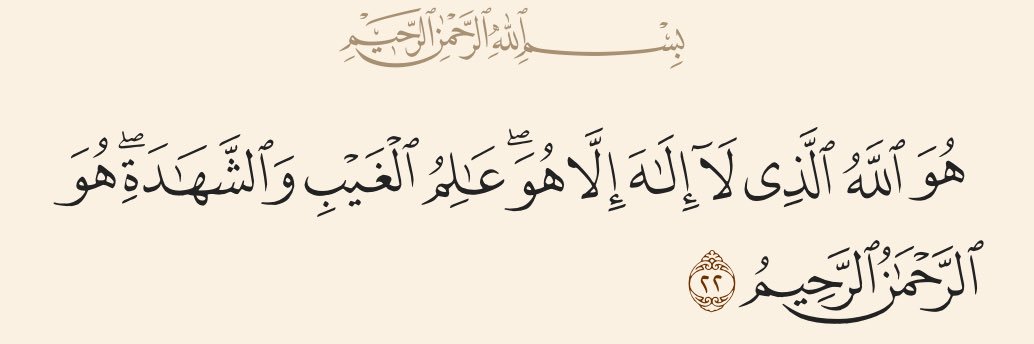 بِسْمِ ٱللَّهِ ٱلرَّحْمَٰنِ ٱلرَّحِيمِ
هُوَ ٱللَّهُ ٱلَّذِى لَآ إِلَٰهَ إِلَّا هُوَ ۖ عَٰلِمُ ٱلْغَيْبِ وَٱلشَّهَٰدَةِ ۖ هُوَ
ٱلرَّحْمَٰنُ ٱلرَّحِيمُ ٢٢